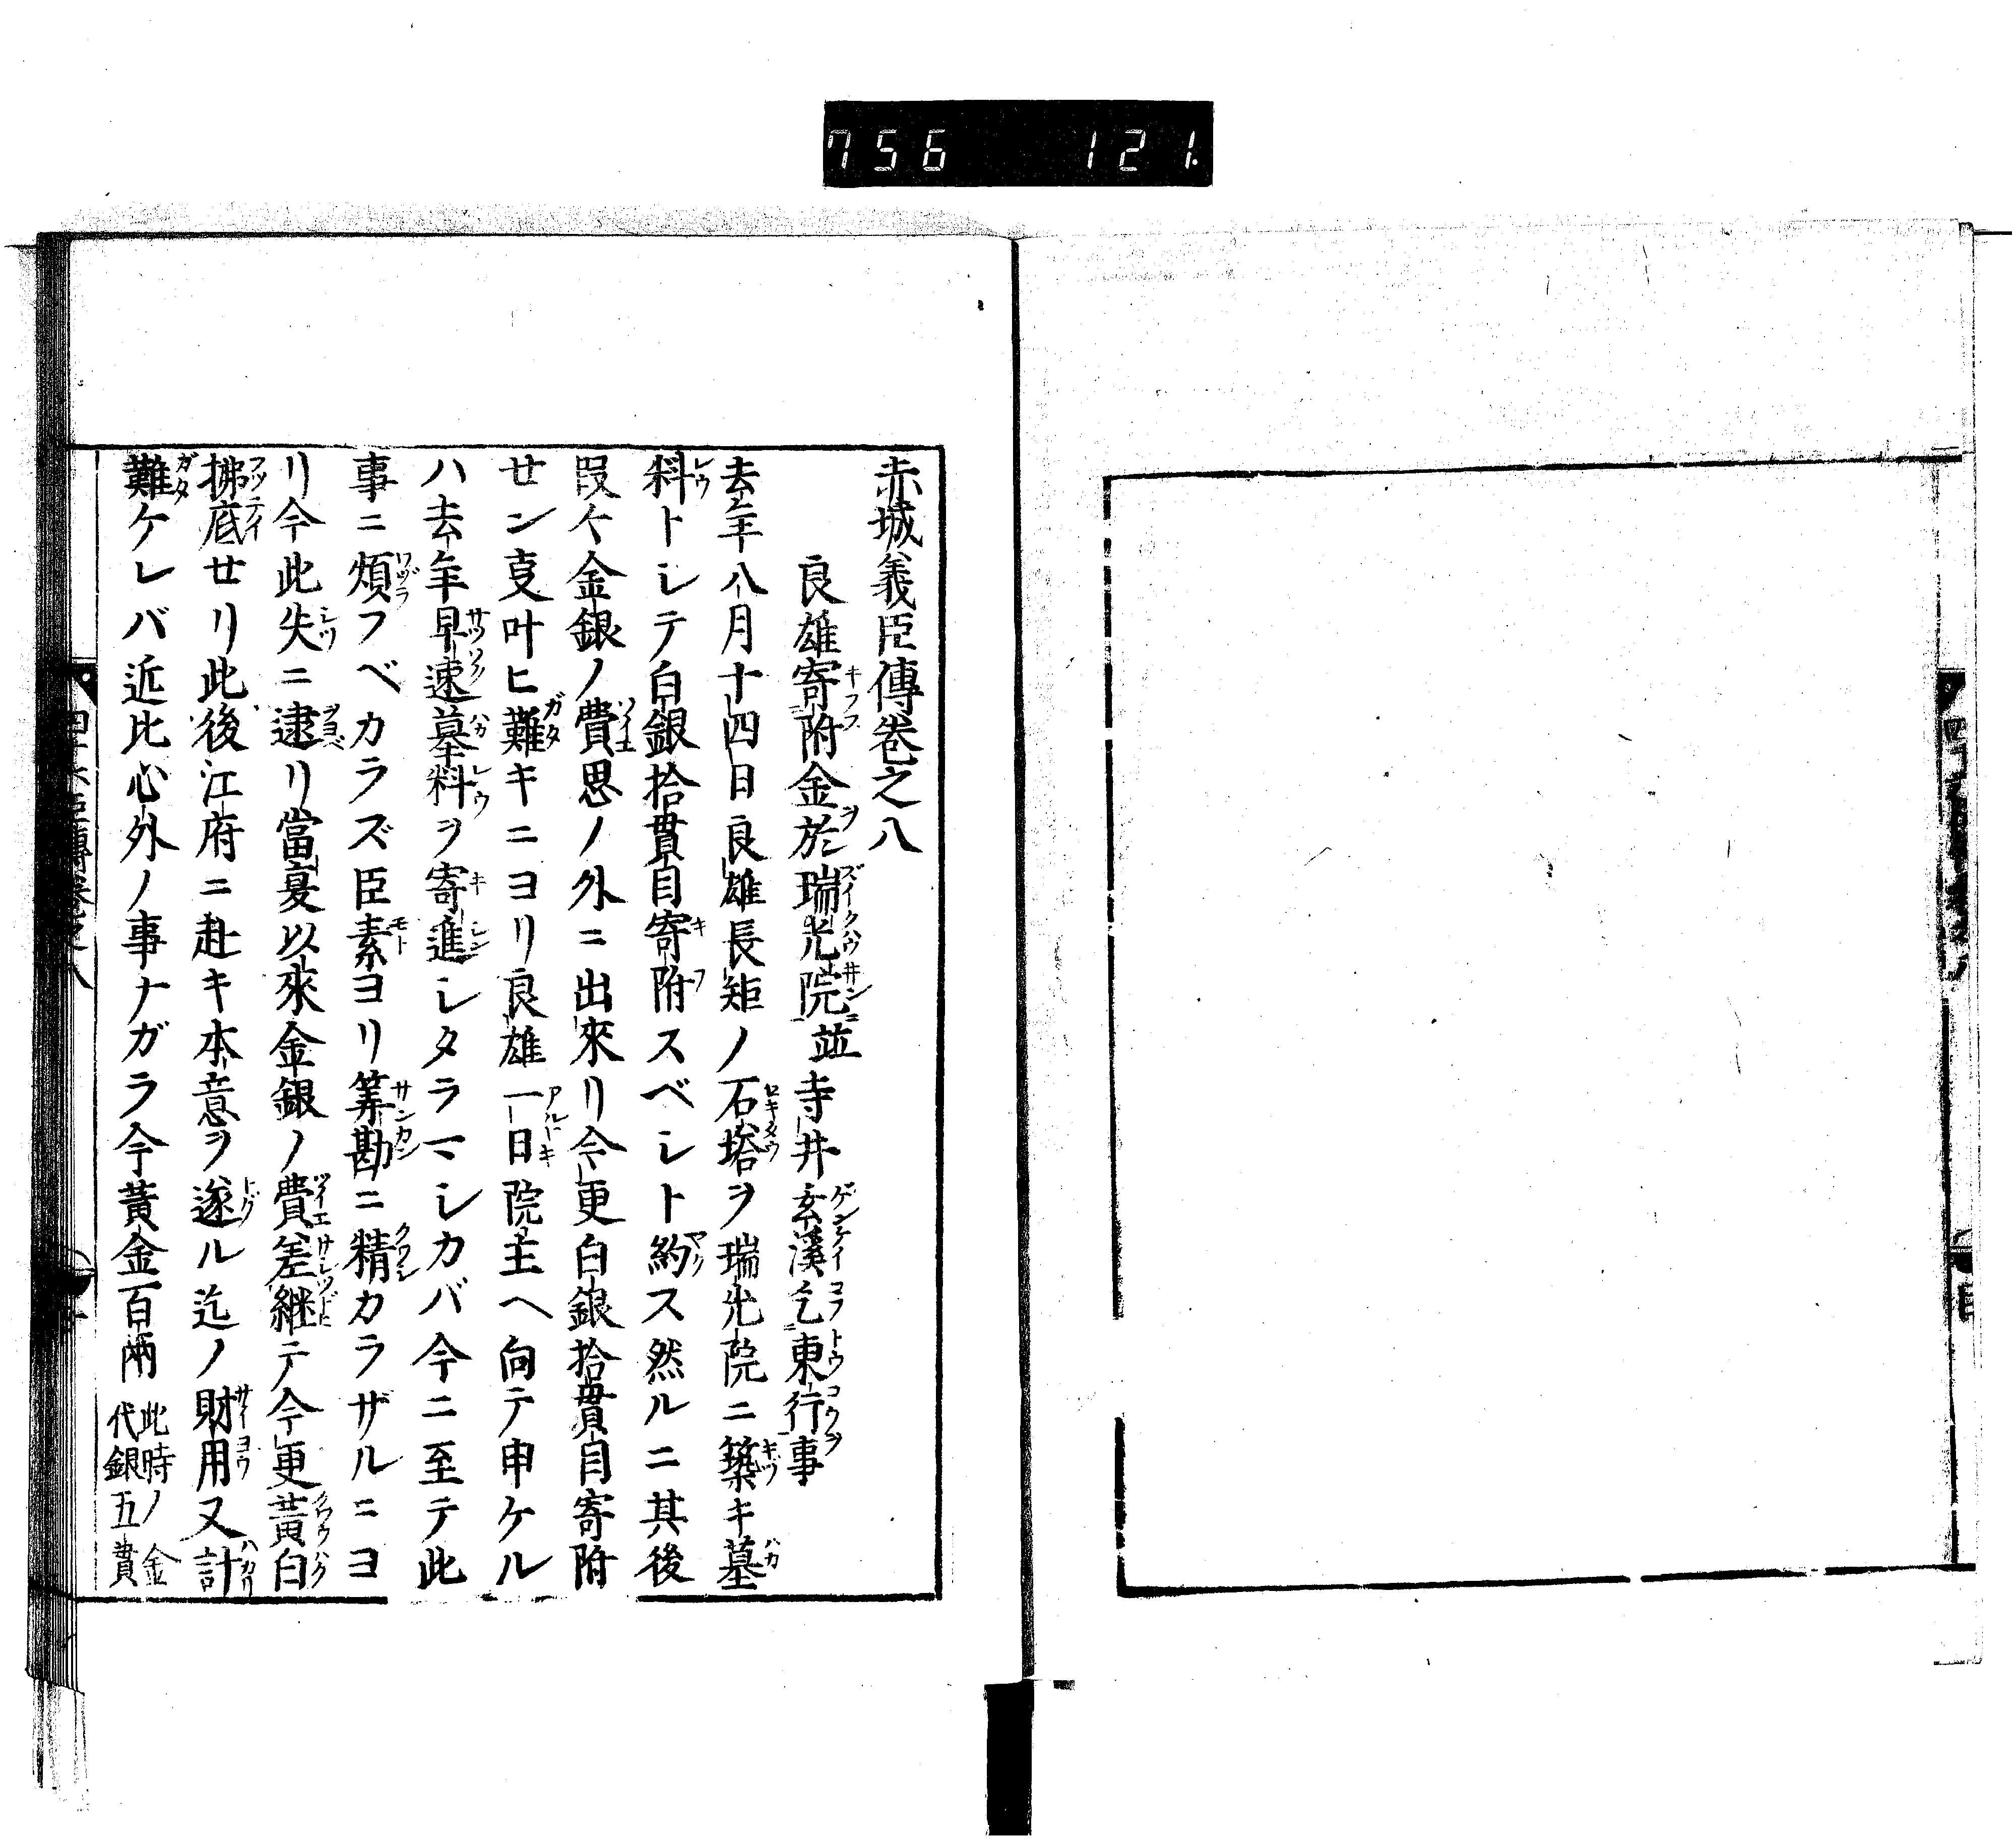 756 121
赤城義臣傳巻之八
良雄寄附金於瑞光院並寺井玄溪乞東行事
去年八月十四日良雄長矩ノ石塔ヲ瑞光院ニ築キ墓
料トシテ白銀拾貫目寄附スベシト約ス然ルニ其後
段々金銀ノ費思ノ外ニ出來リ今更白銀拾貫目寄附
セン叓叶ヒ難キニヨリ良雄一日院主ヘ向テ申ケル
ハ去年早速墓料ヲ寄進シタラマシカバ今ニ至テ此
事ニ煩フベカラズ臣素ヨリ筭勘ニ精カラザルニヨ
リ今此失ニ逮リ當夏以來金銀ノ費差継テ今更黄白
拂底セリ此後江府ニ赴キ本意ヲ遂ル迄ノ財用又計
難ケレバ近比心外ノ事ナガラ今黄金百両
此時ノ金
代銀五貫